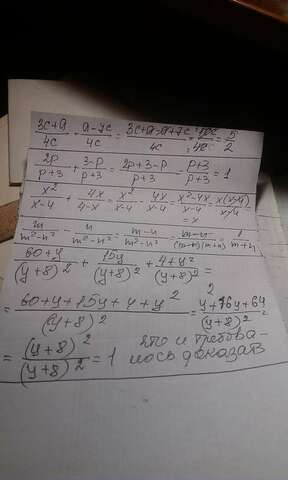 (3c+a)/4c - (a-7c)/4c = (3c+a-a+7c)/4c = 10c/4c = 5/2
2p/(p+3) + (3-p)/(p+3) = (2p+3-p)/(p+3) = (p+3)/(p+3) = 1
x²/(x-4) + 4x/(4-x) = x²/(x-4) - 4x/(x-4) = (x²-4x)/(x-4) = x(x-4)/(x-4) =
= x
m/(m²-n²) - n/(m²-n²) = (m-n)/(m²-n²) = (m-n)/((m-n)(m+n)) = 1/(m+n)
(60+y)/(y+8)² + 15y/(y+8)² + (4+y²)/(y+8)² =
= (60+y+15y+4+y²)/(y+8)² = (y²+16y+64)/(y+8)² =
= (y+8)²/(y+8)² = 1 что и требова-
лось доказать